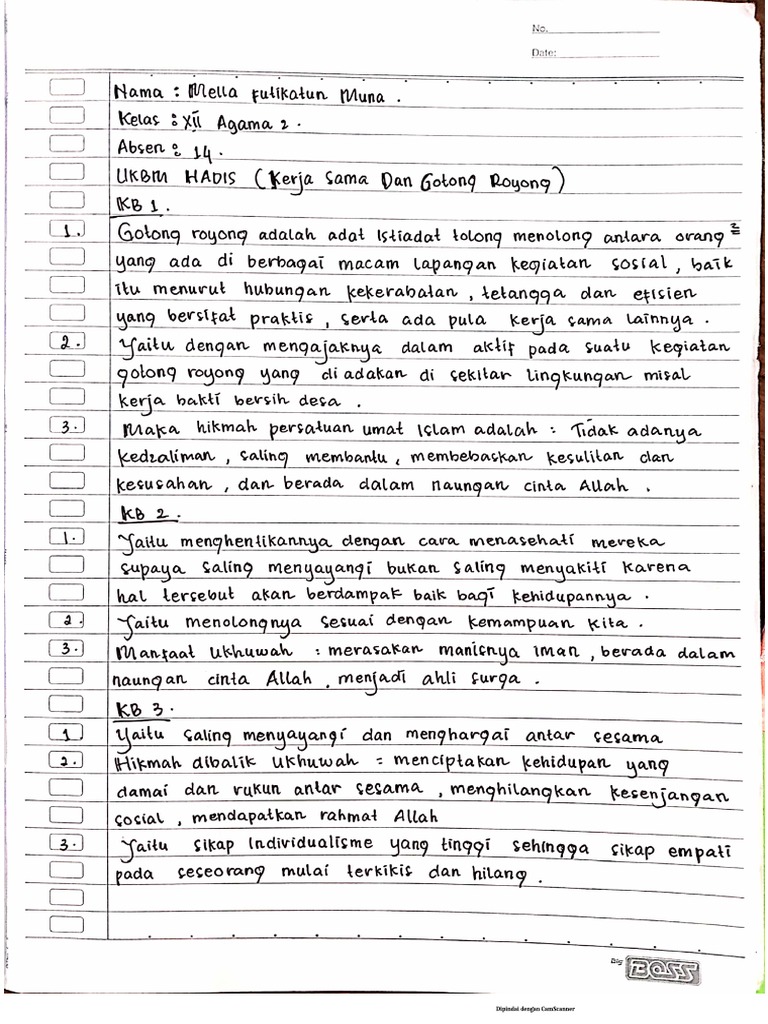 No.
Date:
Nama : Mella futikatun Muna .
Kelas : XII Agama 2 .
Absen : 14 .
UKBM HADIS ( Kerja Sama Dan Gotong Royong )
KB 1 .
1. Gotong royong adalah adat istiadat tolong menolong antara orang ²
yang ada di berbagai macam lapangan kegiatan sosial , baik
itu menurut hubungan kekerabatan , tetangga dan efisien
yang bersifat praktis , serta ada pula kerja sama lainnya .
2. Yaitu dengan mengajaknya dalam aktif pada suatu kegiatan
gotong royong yang di adakan di sekitar lingkungan misal
kerja bakti bersih desa .
3. Maka hikmah persatuan umat Islam adalah : Tidak adanya
kedzaliman , saling membantu , membebaskan kesulitan dan
kesusahan , dan berada dalam naungan cinta Allah .
KB 2 .
1. Yaitu menghentikannya dengan cara menasehati mereka
supaya saling menyayangi bukan saling menyakiti karena
hal tersebut akan berdampak baik bagi kehidupannya .
2. Yaitu menolongnya sesuai dengan kemampuan kita .
3. Manfaat Ukhuwah : merasakan manisnya iman , berada dalam
naungan cinta Allah , menjadi ahli surga .
KB 3 .
1 Yaitu saling menyayangi dan menghargai antar sesama
2. Hikmah dibalik Ukhuwah = menciptakan kehidupan yang
damai dan rukun antar sesama , menghilangkan kesenjangan
sosial , mendapatkan rahmat Allah
3. Yaitu sikap individualisme yang tinggi sehingga sikap empati
pada seseorang mulai terkikis dan hilang .
Big BOSS
Dipindai dengan CamScanner